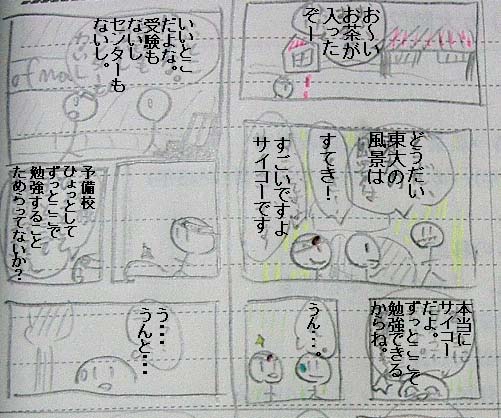 お〜い
お茶が
入った
ぞー
どうだい
東大の
風景は
すてき!
すごいですよ
サイコーです
本当に
サイコー
だよ。
ずっとここで
勉強できる
からね。
うん…。
いいとこ
だよな。
受験も
ないし
センターも
ないし。
予備校
ひょっとして
ずっとここで
勉強すること
ためらってないか?
う……
うんと…